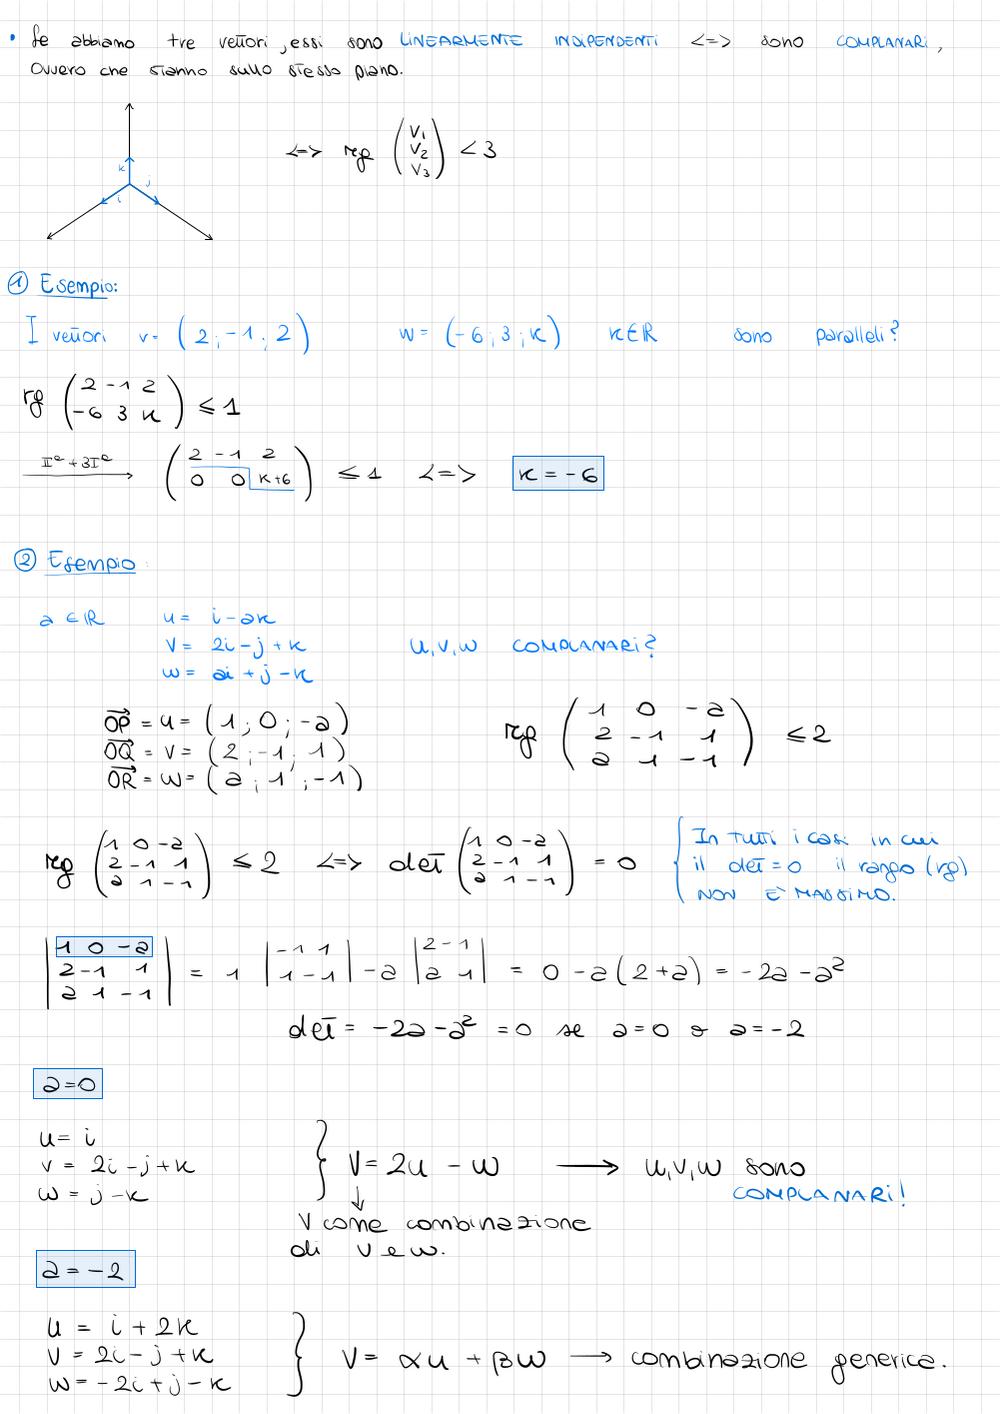 • Se abbiamo tre vettori, essi sono LINEARMENTE INDIPENDENTI <=> sono COMPLANARI,
ovvero che stanno sullo stesso piano.
k
j
i
<=> rg (V₁ V₂ V₃) < 3
① Esempio:
I vettori v = (2; -1; 2) w = (-6; 3; k) k∈ℝ sono paralleli?
rg (2 -1 2
-6 3 k) ≤ 1
IIª + 3Iª → (2 -1 2
0 0 k+6) ≤ 1 <=> k = -6
② Esempio:
a ∈ ℝ u = i - ak
v = 2i - j + k u, v, w COMPLANARI?
w = ai + j - k
OP = u = (1; 0; -a)
OQ = v = (2; -1; 1)
OR = w = (a; 1; -1)
rg (1 0 -a
2 -1 1
a 1 -1) ≤ 2
rg (1 0 -a
2 -1 1
a 1 -1) ≤ 2 <=> det (1 0 -a
2 -1 1
a 1 -1) = 0
In tutti i casi in cui
il det = 0 il rango (rg)
NON È MASSIMO.
|1 0 -a
2 -1 1
a 1 -1| = 1 |-1 1
1 -1| - a |2 -1
a 1| = 0 - a(2+a) = -2a - a²
det = -2a - a² = 0 se a = 0 o a = -2
a = 0
u = i
v = 2i - j + k
w = j - k
} V = 2u - w → u, v, w sono
COMPLANARI!
↓
V come combinazione
di v e w.
a = -2
u = i + 2k
v = 2i - j + k
w = -2i + j - k
} V = αu + βw → combinazione generica.